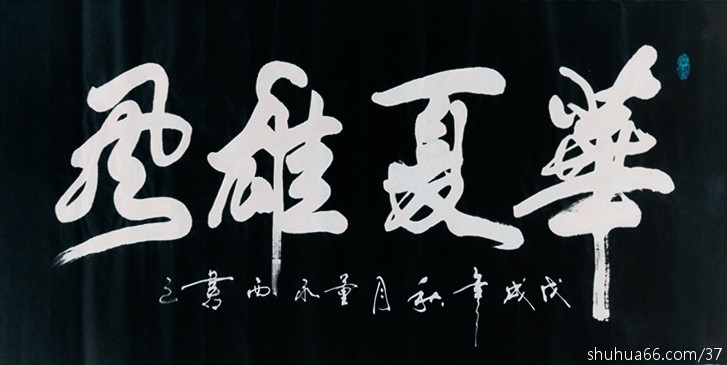 華夏雄風
戊戌年秋月董永西書之
shuhua66.com/37